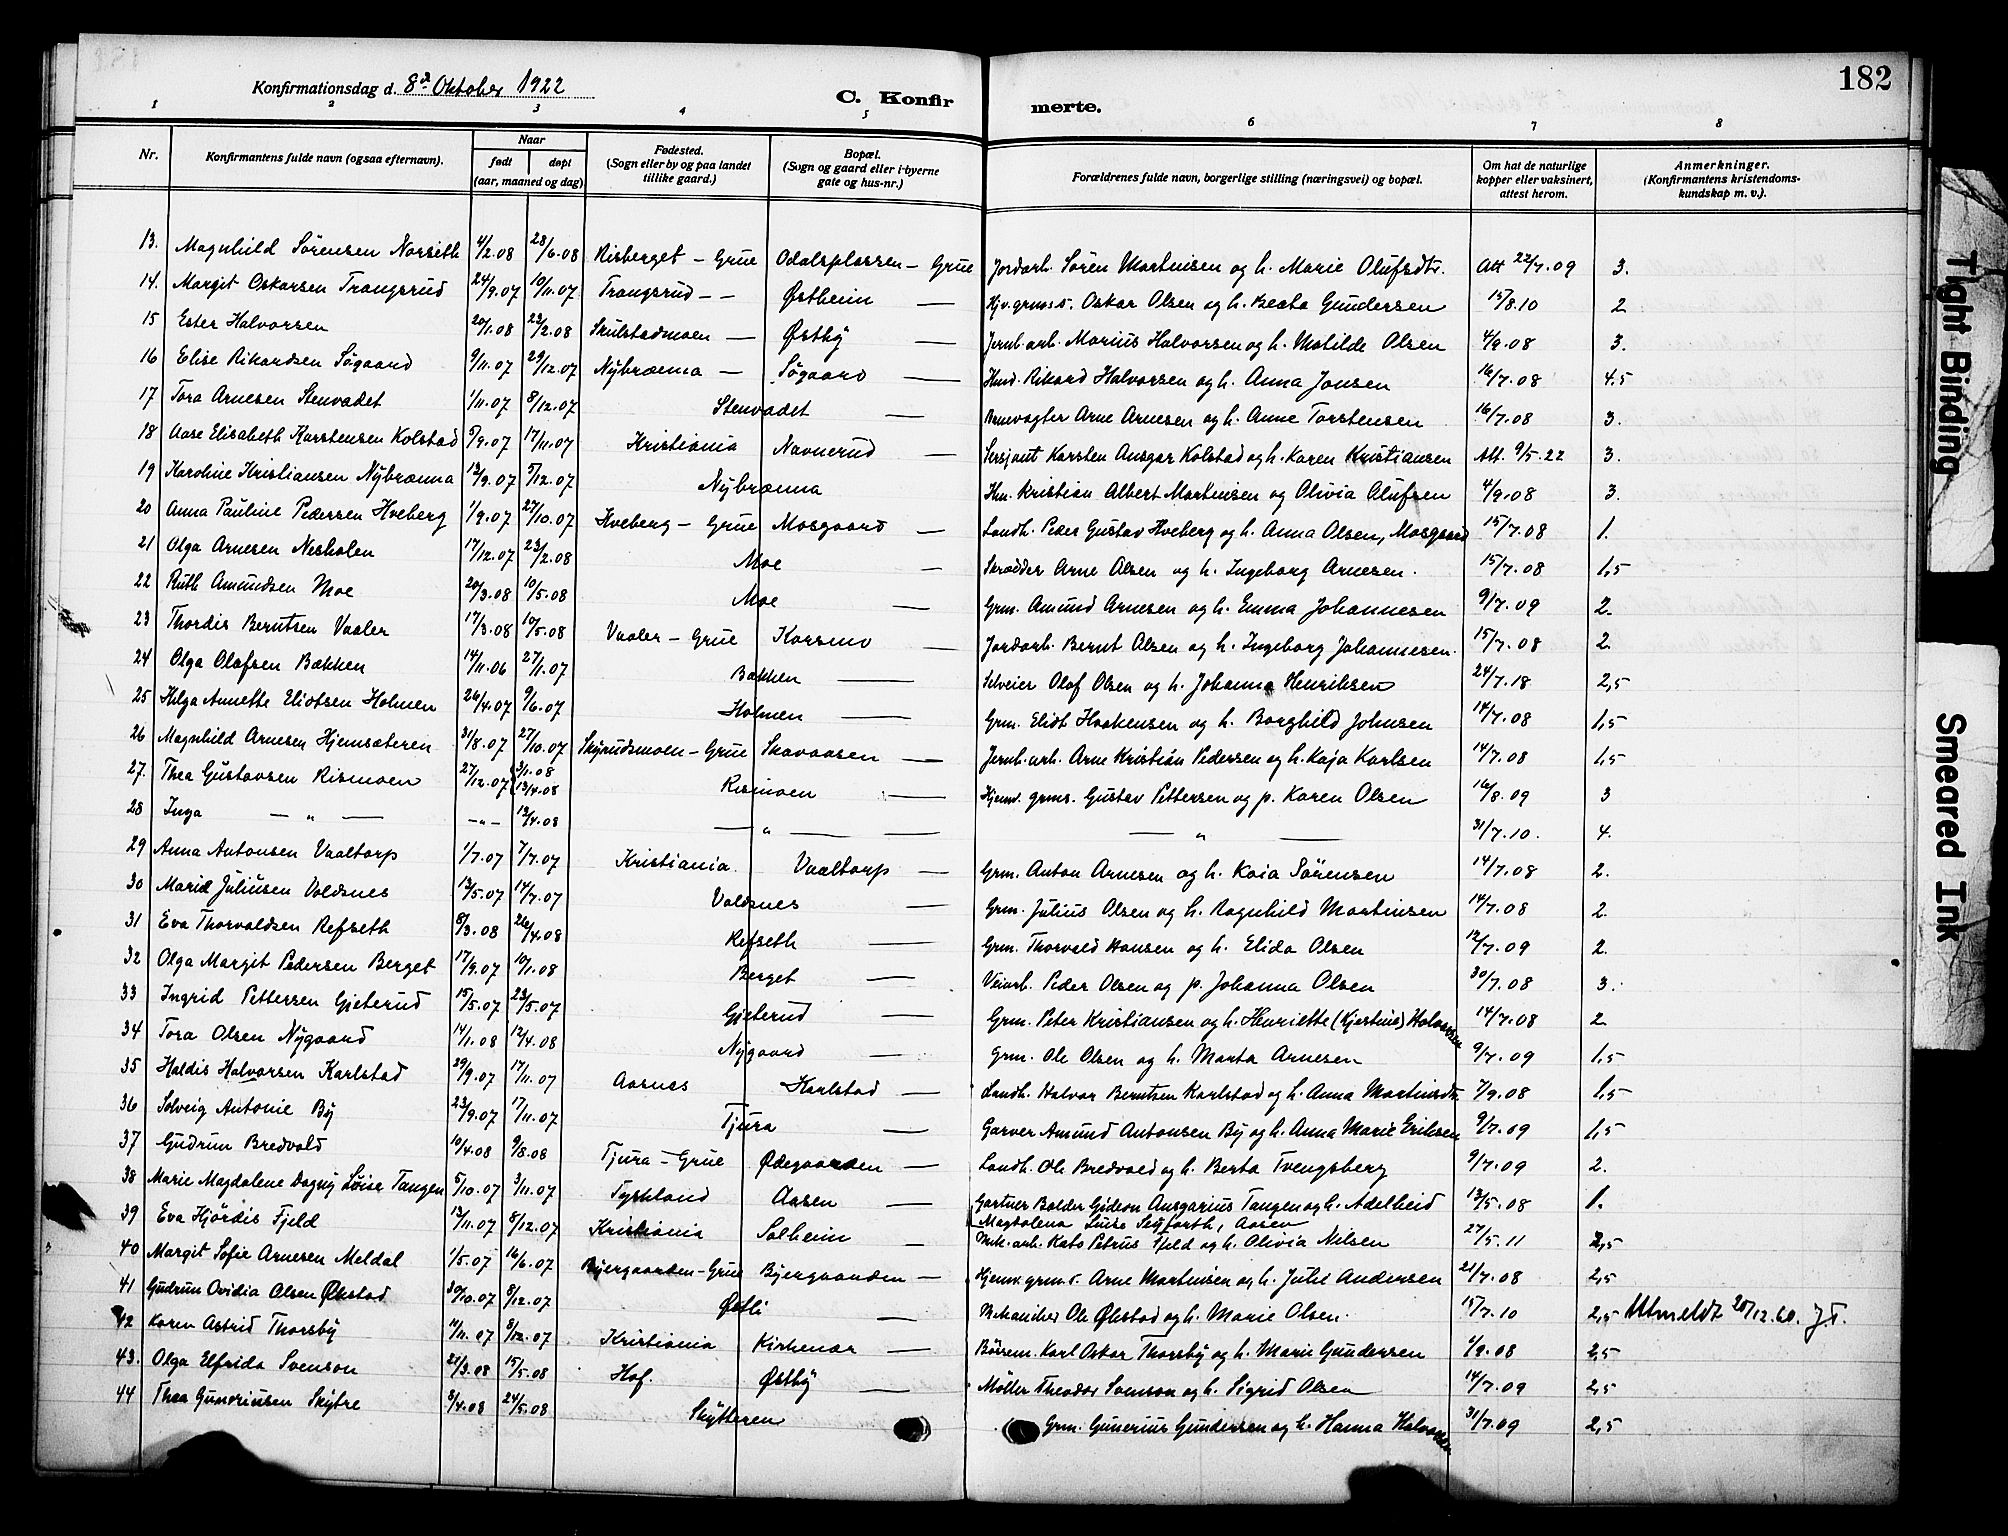 182
Konfirmationsdag d. 8d Oktober 1922
C. Konfirmerte.
1 2 3 4 5 6 7 8
Nr. Konfirmantens fulde navn (ogsaa efternavn). Naar født døpt (aar, maaned og dag) Fødested. (Sogn eller by og paa landet tillike gaard.) Bopæl. (Sogn og gaard eller i byerne gate og hus-nr.) Forældrenes fulde navn, borgerlige stilling (næringsvei) og bopæl. Om hat de naturlige kopper eller vaksinert, attest herom. Anmerkninger. (Konfirmantens kristendomskundskap m. v.).
13. Magnhild Sørensen Norseth 4/2.08 28/6.08 Risberget – Grue Odalsplassen – Grue Jordarb. Søren Martinsen og h. Marie Olufsdtr. Att 22/7.09 3.
14. Margit Oskarsen Trangsrud 24/9.07 10/11.07 Trangsrud – – Østheim — Hjv. grms. Oskar Olsen og h. Beata Gundersen 15/8.10 2
15 Ester Halvorsen 20/1.08 23/2.08 Skulstadmoen — Østby — Jernb. arb. Marius Halvorsen og h. Matilde Olsen 4/9.08 3.
16 Elise Rikardsen Søgaard 9/11.07 29/12.07 Nybrænna — Søgaard — Hmd. Rikard Halvorsen og h. Anna Jonsen 16/7.08 4.5
17 Tora Arnesen Stenvadet 1/11.07 8/12.07 Stenvadet — Banevogter Arne Arnesen og h. Anne Torstensen 16/7.08 3.
18 Aase Elisabeth Karstensen Kolstad 5/9.07 17/11.07 Kristiania Navnerud — Sersjant Karsten Ansgar Kolstad og h. Karen Kristiansen Att. 9/5.22 3.
19 Karoline Kristiansen Nybrænna 12/9.07 5/12.07 Nybrænna Hm. Kristian Albert Martinsen og Olivia Olufsen 4/9.08 3.
20 Anna Pauline Pedersen Hveberg 1/9.07 27/10.07 Hveberg – Grue Mosgaard — Landh. Peder Gustav Hveberg og h. Anna Olsen, Mosgaard 15/7.08 1.
21 Olga Arnesen Nesholen 17/12.07 23/2.08 Moe — Skrædder Arne Olsen og h. Ingeborg Arnesen. 15/7.08 1,5
22 Ruth Amundsen Moe 20/3.08 10/5.08 Moe — Grm. Amund Arnesen og h. Emma Johannesen 9/7.09 2.
23 Thordis Berntsen Vaaler 17/3.08 10/5.08 Vaaler – Grue Korsmo — Jordarb. Bernt Olsen og h. Ingeborg Johannesen. 15/7.08 2.
24 Olga Olafsen Bækken 14/11.06 27/1.07 Bækken — Selveier Olaf Olsen og h. Johanna Henriksen 24/7.18 2,5
25 Helga Annette Elidtsen Holmen 26/4.07 9/6.07 Holmen — Grm. Elidt Haakensen og h. Borghild Johnsen 14/7.08 1,5
26 Magnhild Arnesen Hjemsæteren 31/8.07 27/10.07 Skyrudsmoen – Grue Skavaasen — Jernb. arb. Arne Kristian Pedersen og h. Kaja Karlsen 14/7.08 1,5
27. Thea Gustavsen Rismoen 27/12.07 3/1.08 13/4.08 Rismoen — Hjemv. grms. Gustav Pettersen og p. Karen Olsen 16/8.09 3
28 Inga — " — – " – 12/4.08 — " — — — " — 31/7.10. 4.
29 Anna Antonsen Vaaltorp 1/7.07 7/7.07 Kristiania. Vaaltorp — Grm. Anton Arnesen og h. Kaia Sørensen 14/7.08 2.
30 Marie Juliusen Voldsnes 13/5.07 14/7.07 Voldsnes — Grm. Julius Olsen og h. Ragnhild Martinsen 14/7.08 2.
31 Eva Thorvaldsen Refseth 8/3.08 26/4.08 Refseth — Grm. Thorvald Hansen og h. Elida Olsen 12/7.09 2.
32 Olga Margit Pedersen Berget 17/9.07 10/1.08 Berget — Veiarb. Peder Olsen og p. Johanna Olsen 30/7.08 3.
33 Ingrid Pettersen Gjeterud 15/5.07 23/5.07 Gjeterud — Grm. Peter Kristiansen og h. Henriette (Kjerstine) Halvorsen 14/7.08 2
34 Tora Olsen Nygaard 14/1.08 12/4.08 Nygaard — Grm. Ole Olsen og h. Marta Arnesen 9/7.09 1,5
35 Haldis Halvorsen Karlstad 29/9.07 17/11.07 Aasnes Karlstad — Landh. Halvor Berntsen Karlstad og h. Anna Martinsdtr. 7/9.08 1,5
36 Solveig Antonie By 23/9.07 17/11.07 Tjura — Garver Amund Antonsen By og h. Anna Marie Eriksen 9/7.09 1,5
37 Gudrun Bredvold 10/4.08 9/8.08 Tjura – Grue Ødegaarden — Landh. Ole Bredvold og h. Berta Tvengsberg 9/7.09 2.
38 Marie Magdalene Dagny Løise Tangen 5/10.07 3/11.07 Tyskland Aasen — Gartner Balder Gideon Ansgarius Tangen og h. Adelheid Magdalena Luise Seyforth, Aasen 13/5.08 1.
39 Eva Hjørdis Fjeld 13/11.07 8/12.07 Kristiania Solheim — Mek. arb. Kato Petrus Fjeld og h. Olivia Nilsen 27/5.11 2,5
40 Margit Sofie Arnesen Meldal 1/5.07 16/6.07 Byergaarden – Grue Byergaarden — Hjemv. grms. Arne Martinsen og h. Julie Andersen 21/7.08 2,5
41 Gudrun Ovidia Olsen Økstad 30/10.07 8/12.07 Østli — Mekaniker Ole Økstad og h. Marie Olsen. 15/7.10 2,5 Utmeldt 20/12.60. J.T.
42 Karen Astrid Thorsby 11/11.07 8/12.07 Kristiania Kirkenær — Børsem. Karl Oskar Thorsby og h. Marie Gundersen 1/9.08 2,5
43. Olga Elfrida Svenson 21/3.08 15/5.08 Hof. Østby — Møller Theodor Svenson og h. Sigrid Olsen 14/7.09 2,5
44 Thea Guneriusen Skytre 3/4.08 24/5.08 Skytteren Grm. Gunerius Gundersen og h. Hanna Halvorsen 31/7.09 2,5
Tight Binding
Smeared Ink